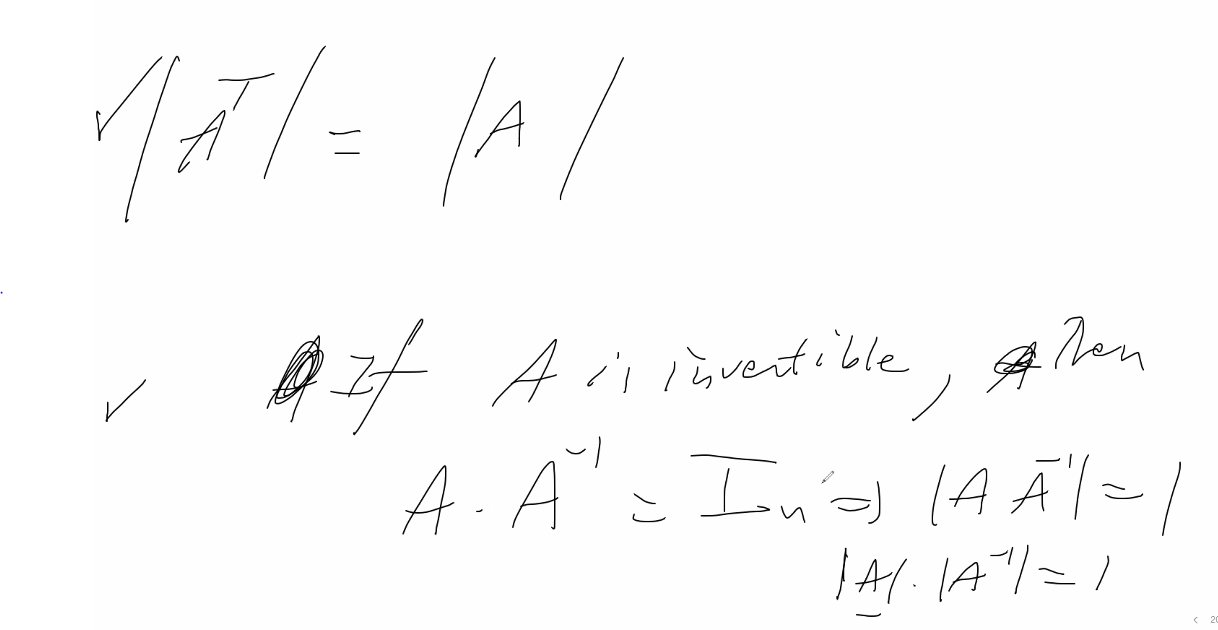 ✓ |Aᵀ| = |A|
✓ If A is invertible, then
A · A⁻¹ = Iₙ ⇒ |A A⁻¹| = 1
|A| · |A⁻¹| = 1
< 20